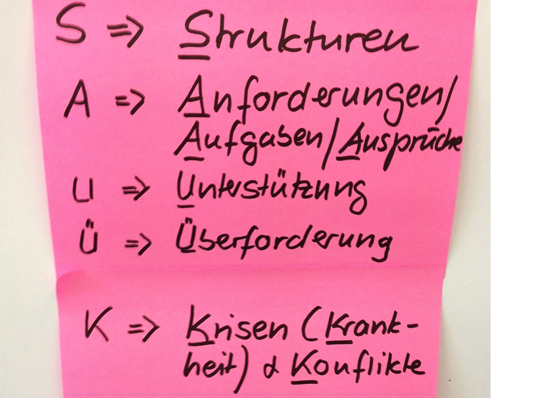 S => Strukturen
A => Anforderungen/
Aufgaben/Ansprüche
U => Unterstützung
Ü => Überforderung
K => Krisen (Krank-
heit) & Konflikte